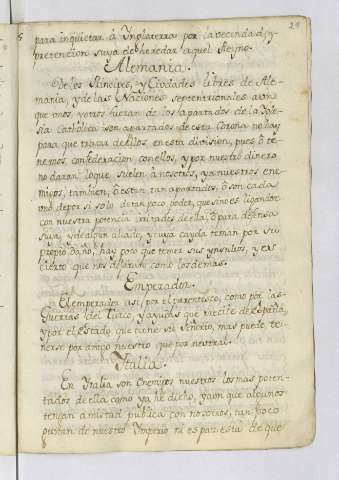 29
para inquietar à Inglaterra por la vecindad, y
pretencion suya de heredar aquel Reyno.
Alemania.
De los Principes, y Ciudades libres de Ale-
mania, y de las Naciones septentrionales aun
que unos, y otros fueran de los apartados de la Igle-
sia Catholica son apartados de esta Corona no hay
para que tratar de ellos, en esta division, pues ò te-
nemos confederacion con ellos, y por nuestro dinero
no daran loque suelen à nosotros, ya nuestros ene-
migos, tambien, ò estan tan apartados, ò son cada
uno de por si solo de tan poco poder, que sino es ligandose
con nuestra potencia irritados de ella, ò para defensa
suya, y de algun aliado, y cuya cayda teman por su
propio daño, hay poco que temer sus ynsultos, y es
cierto que nos dejaran como los demas.
Emperador.
El emperador asi, por el parentesco, como por las
Guerras del Turco, y ayudas que recibe de España,
y por el estado que tiene su Señorio, mas puede te-
nerse por amigo nuestro que por neutral.
Italia.
En Italia son Enemigos nuestros los mas poten-
tados de ella como ya he dicho, y aun que algunos
tengan amistad publica con nosotros, tan poco
gustan de nuestro Imperio ni es por esta de que